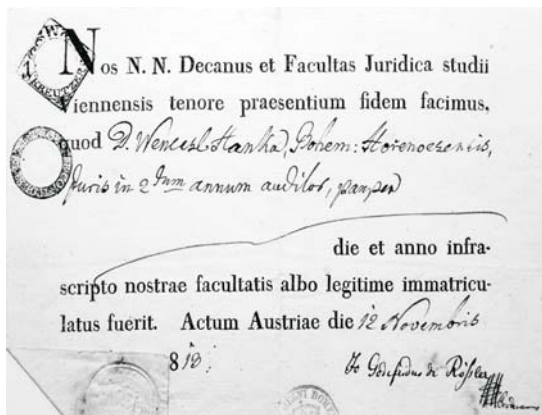 Nos N. N. Decanus et Facultas Juridica studii
Viennensis tenore praesentium fidem facimus,
quod D. Wencesl Hanka, Bohem: Horenovensis,
Juris in 2dum annum auditor, pauper
die et anno infra-
scripto nostrae facultatis albo legitime immatricu-
latus fuerit. Actum Austriae die 12 Novembris
813.
1 KREUTZER